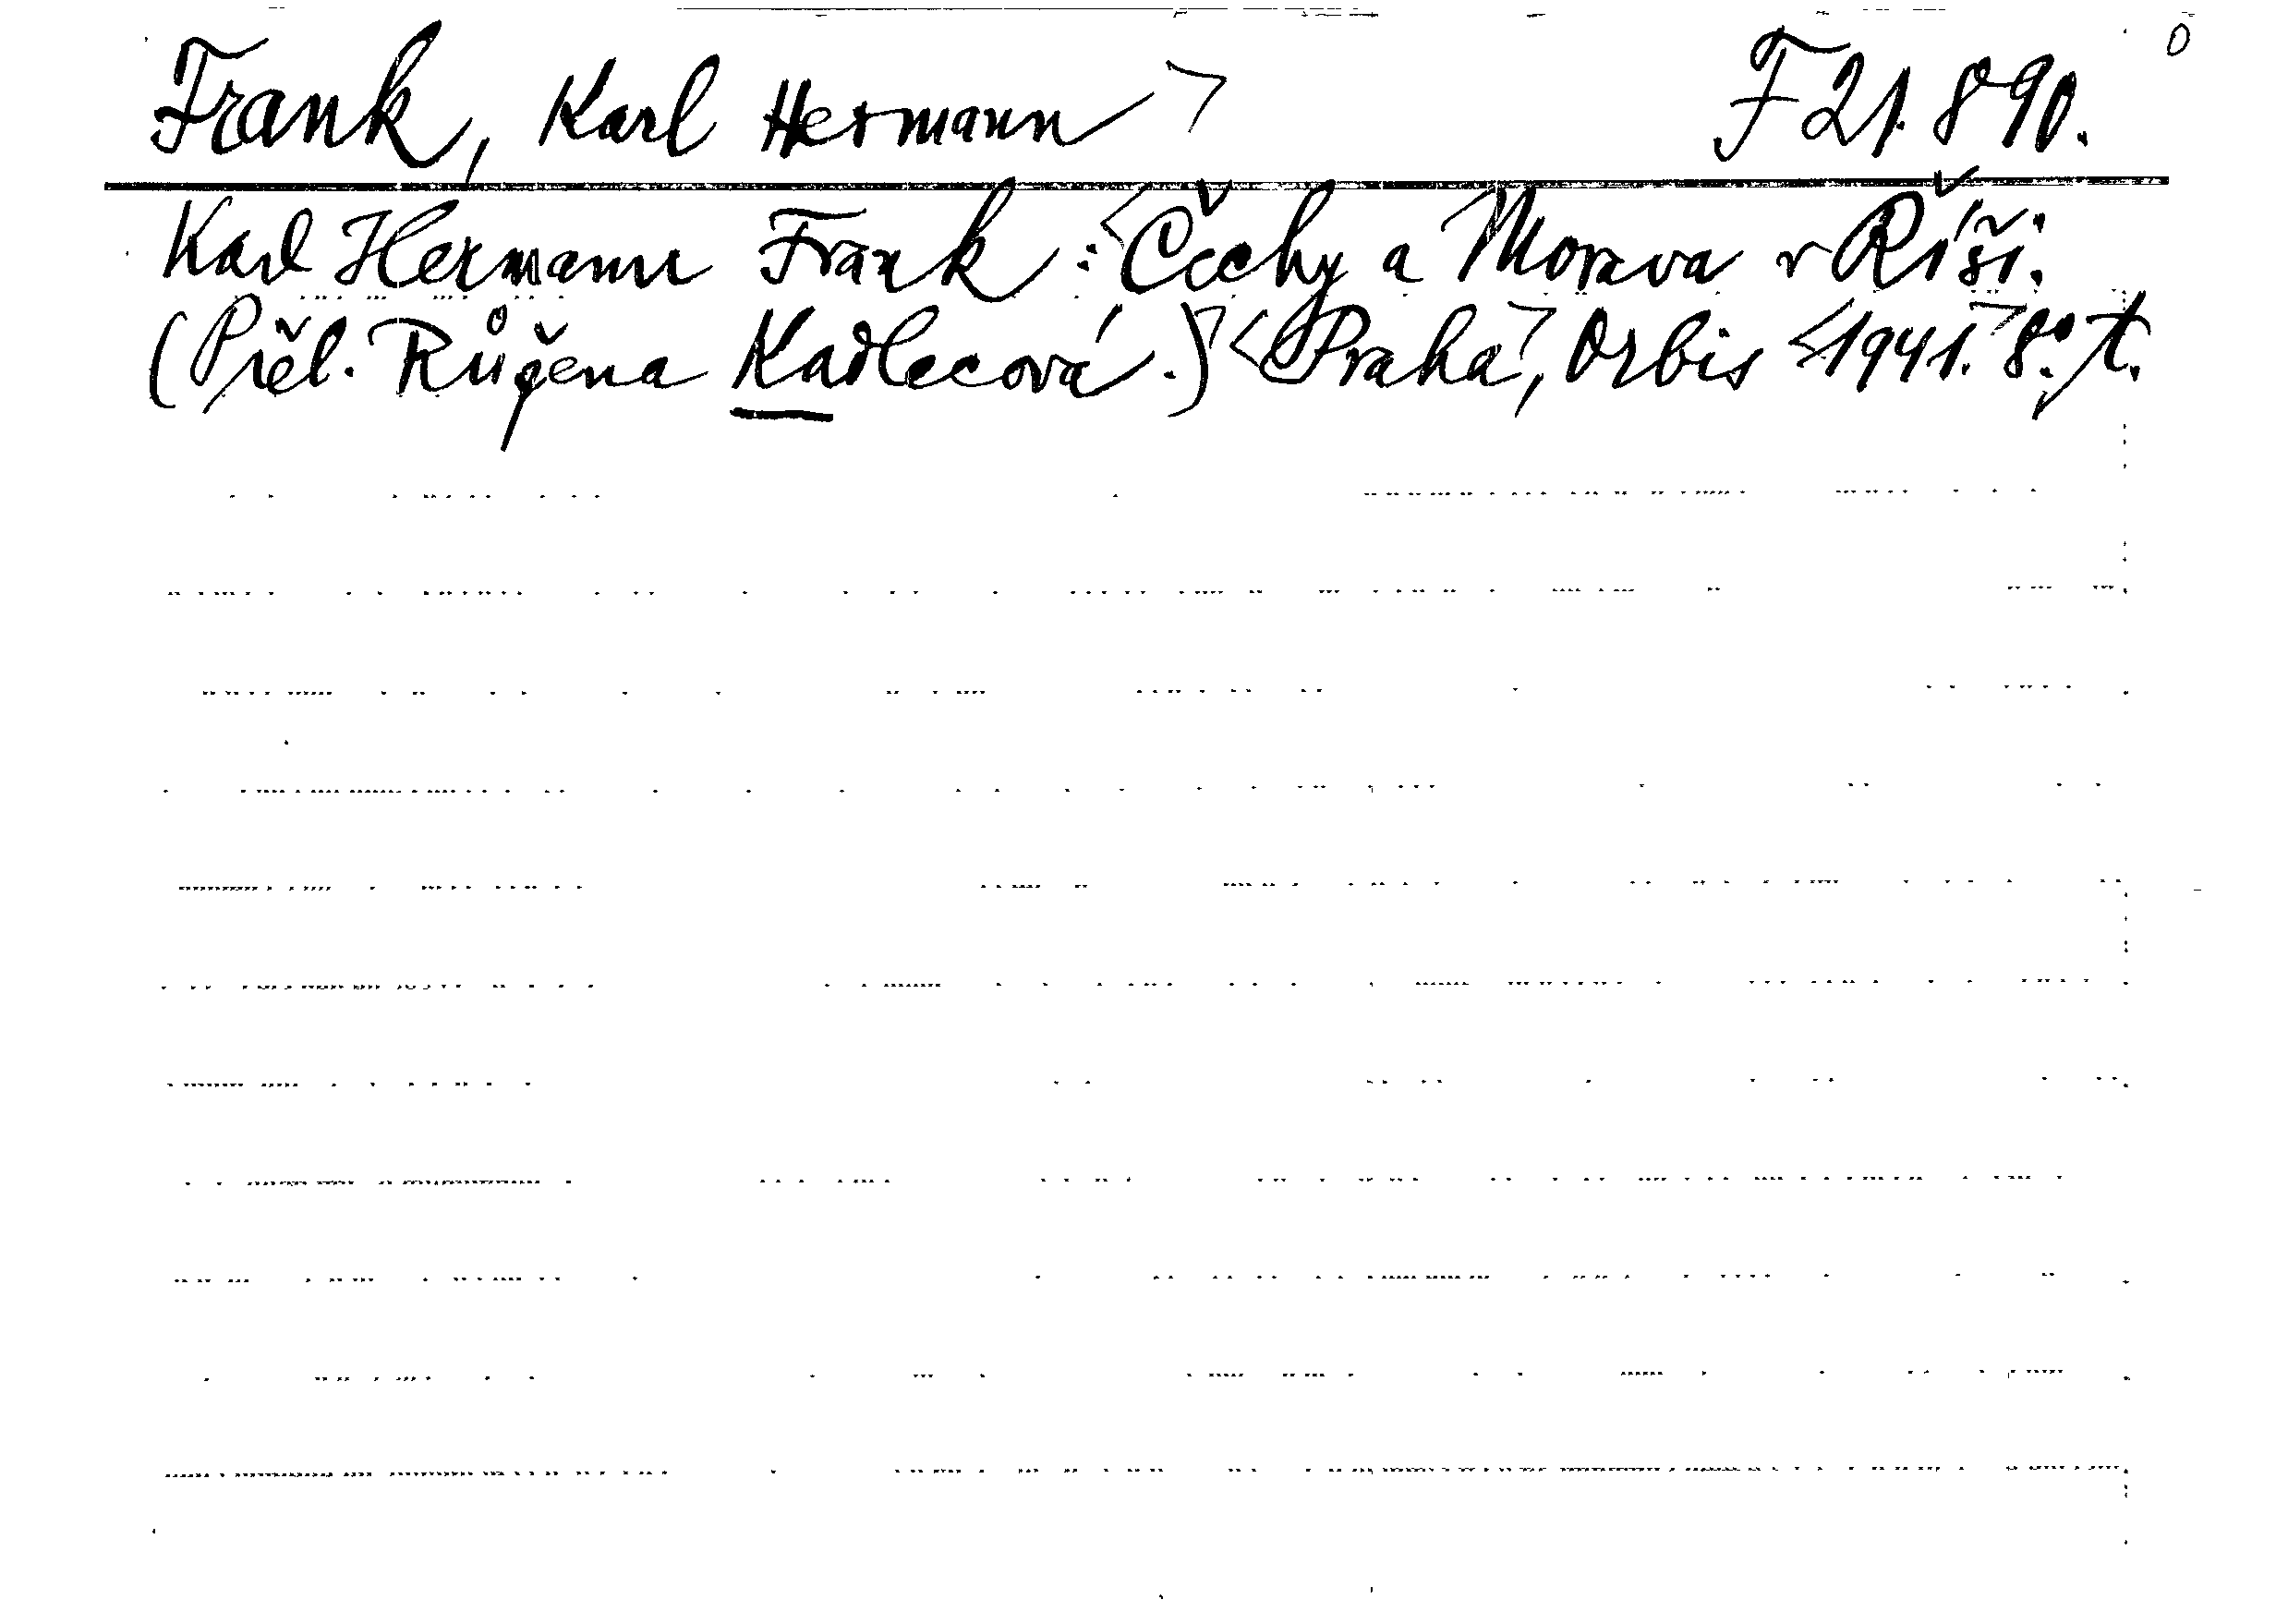 Frank, Karl Hermann> F 21.890. 0
Karl Hermann Frank: <Čechy a Morava v Říši.
(Přel. Růžena Kadlecová.)> <Praha>, Orbis <1941.> 8°, t.